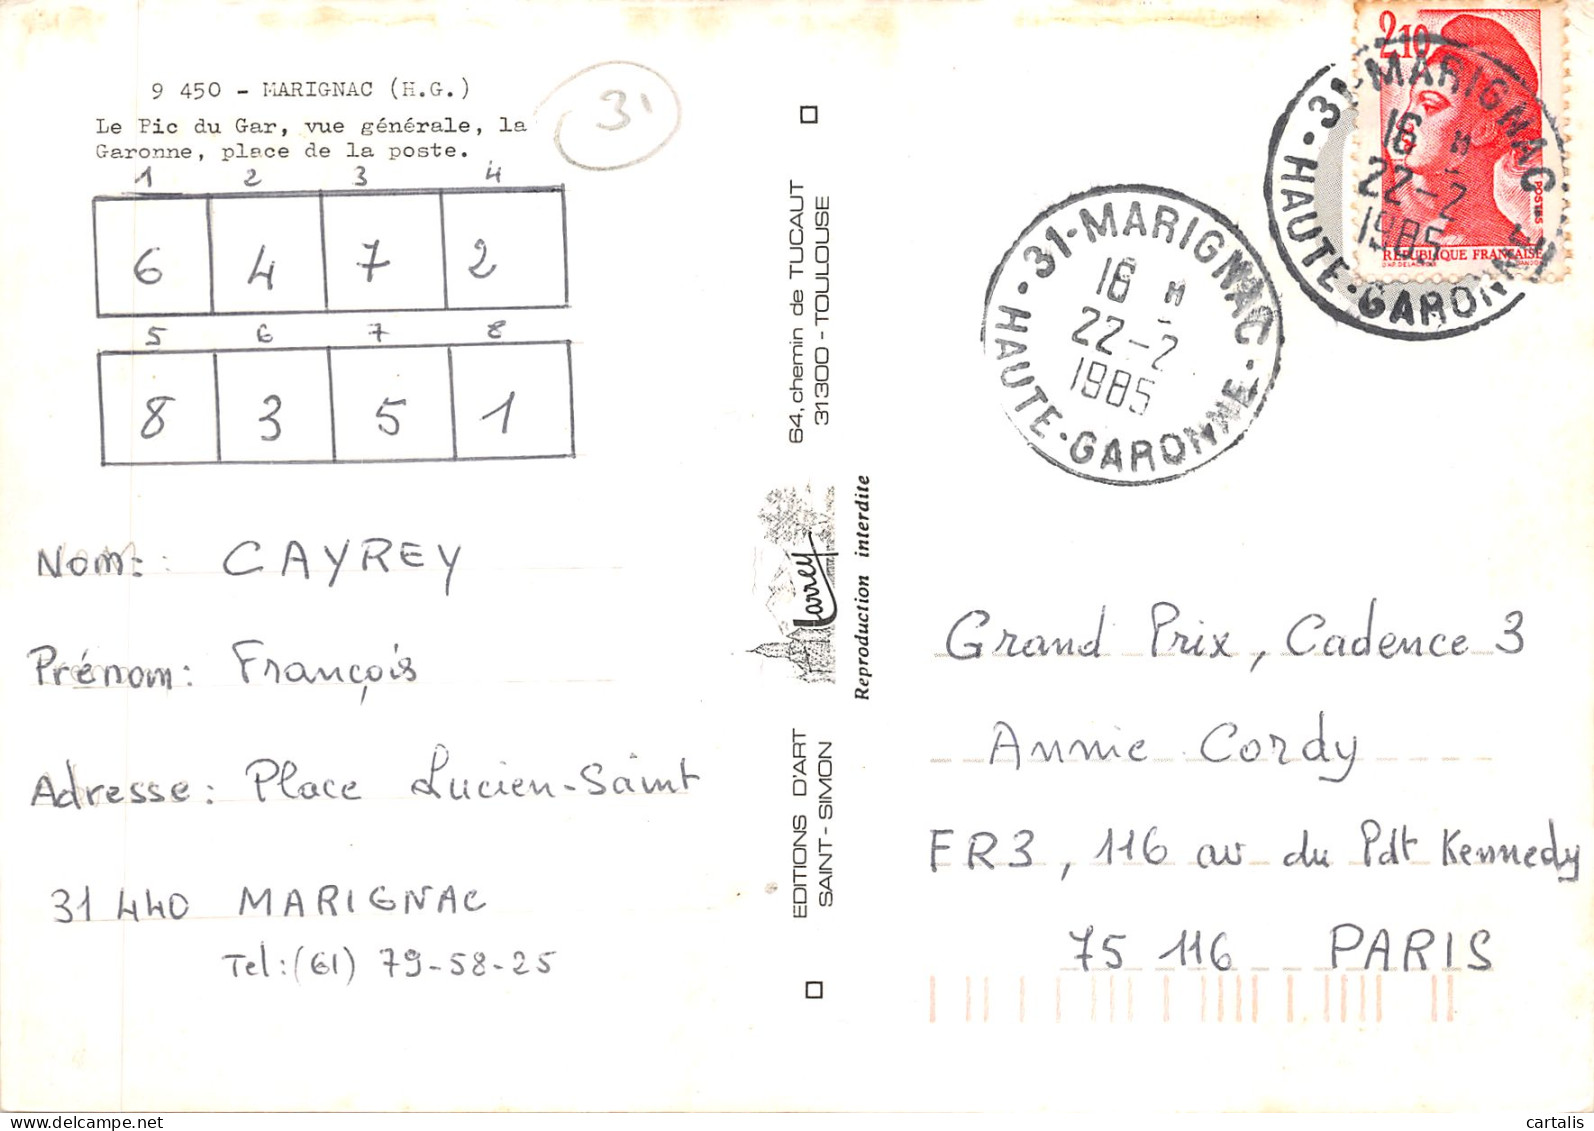 9 450 - MARIGNAC (H.G.)
Le Pic du Gar, vue générale, la
Garonne, place de la poste.
31
1 2 3 4
6 4 7 2
5 6 7 8
8 3 5 1
Nom: CAYREY
Prénom: François
Adresse: Place Lucien-Saint
31 440 MARIGNAC
Tel:(61) 79-58-25
64, chemin de TUCAUT
31300 - TOULOUSE
Larrey
Reproduction interdite
EDITIONS D'ART
SAINT-SIMON
31-MARIGNAC
16 H
22-2
1985
HAUTE-GARONNE
2,10
POSTES
RÉPUBLIQUE FRANÇAISE
31-MARIGNAC
16 H
22-2
1985
HAUTE-GARONNE
Grand Prix, Cadence 3
Annie Cordy
FR3, 116 av du Pdt Kennedy
75 116 PARIS
cartalis
www.delcampe.net